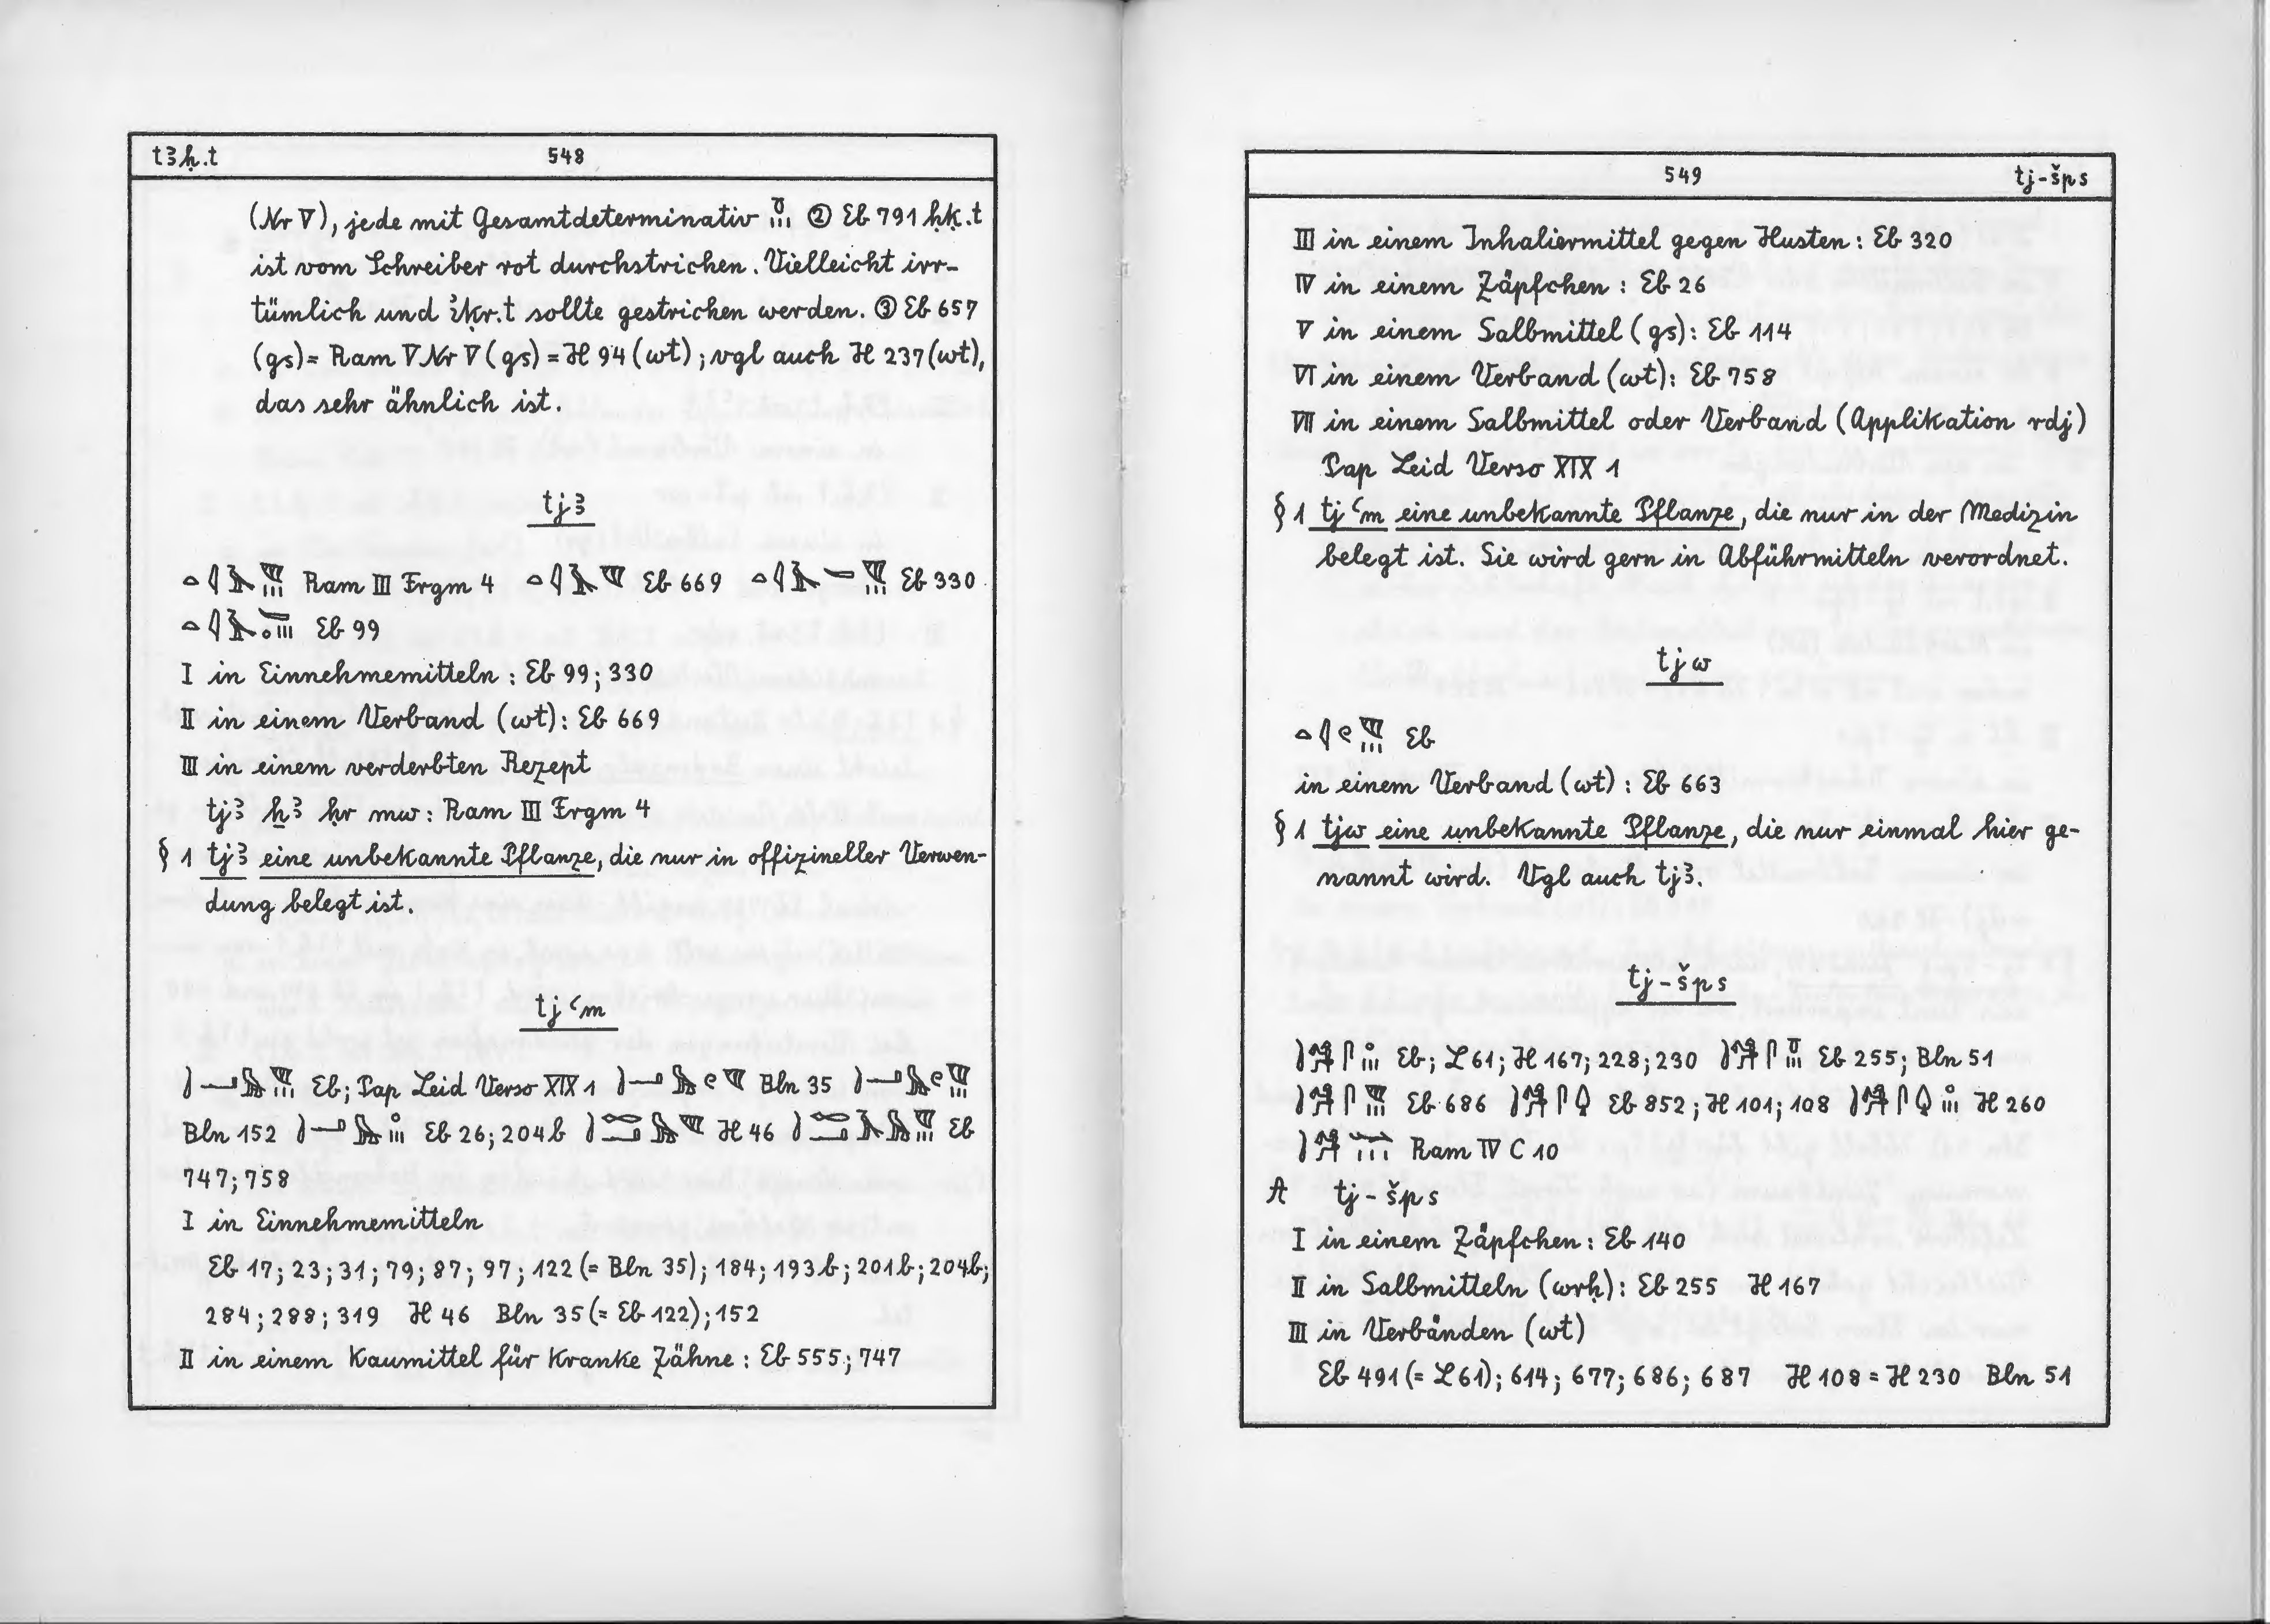 tꜣḥ.t 548
(Nr V), jede mit Gesamtdeterminativ ② Eb 791 ḥḳ.t
ist vom Schreiber rot durchstrichen. Vielleicht irr-
tümlich und ἰḳr.t sollte gestrichen werden. ③ Eb 657
(gs) = Ram V Nr V (gs) = H 94 (wt); vgl auch H 237 (wt),
das sehr ähnlich ist.
tjꜣ
Ram III Frgm 4 Eb 669 Eb 330
Eb 99
I in Einnehmemitteln: Eb 99; 330
II in einem Verband (wt): Eb 669
III in einem verderbten Rezept
tjꜣ ẖꜣ ḥr mw: Ram III Frgm 4
§ 1 tjꜣ eine unbekannte Pflanze, die nur in offizineller Verwen-
dung belegt ist.
tjꜥm
Eb; Pap Leid Verso XIX 1 Bln 35
Bln 152 Eb 26; 204b H 46 Eb
747; 758
I in Einnehmemitteln
Eb 17; 23; 31; 79; 87; 97; 122 (= Bln 35); 184; 193b; 201b; 204b;
284; 288; 319 H 46 Bln 35 (= Eb 122); 152
II in einem Kaumittel für kranke Zähne: Eb 555; 747
549 tj-šps
III in einem Inhaliermittel gegen Husten: Eb 320
IV in einem Zäpfchen: Eb 26
V in einem Salbmittel (gs): Eb 114
VI in einem Verband (wt): Eb 758
VII in einem Salbmittel oder Verband (Applikation rdj)
Pap Leid Verso XIX 1
§ 1 tjꜥm eine unbekannte Pflanze, die nur in der Medizin
belegt ist. Sie wird gern in Abführmitteln verordnet.
tjw
Eb
in einem Verband (wt): Eb 663
§ 1 tjw eine unbekannte Pflanze, die nur einmal hier ge-
nannt wird. Vgl auch tjꜣ.
tj-šps
Eb; L 61; H 167; 228; 230 Eb 255; Bln 51
Eb 686 Eb 852; H 101; 108 H 260
Ram IV C 10
A tj-šps
I in einem Zäpfchen: Eb 140
II in Salbmitteln (wrḥ): Eb 255 H 167
III in Verbänden (wt)
Eb 491 (= L 61); 614; 677; 686; 687 H 108 = H 230 Bln 51